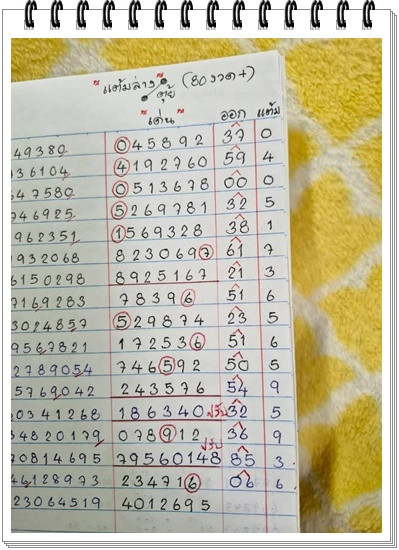 "แต้มล่าง" (80งวด+)
ตุ้ย
"เด่น" ออก แต้ม
49380 045892 37 0
936104 4192760 59 4
647580 0513678 00 0
746925 5269781 32 5
962351 1569328 38 1
932068 8230697 61 7
6150298 8925167 21 3
7169283 78396 51 6
3024857 529874 23 5
9567821 172536 51 6
2789054 746592 50 5
5769042 243576 54 9
20341268 186340 ปรับ 32 5
34820179 078912 36 9
ปรับ
70814695 79560148 85 3
46128973 234716 06 6
23064519 4012695